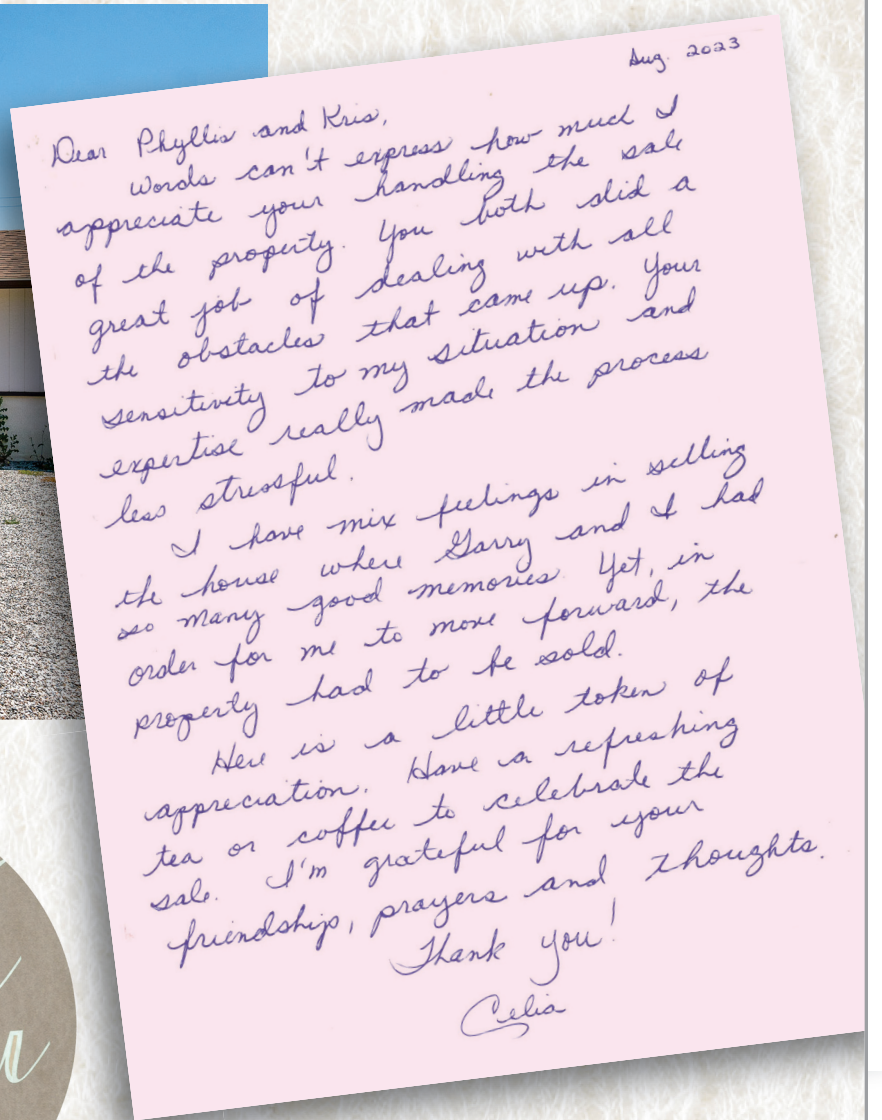 Aug. 2023
Dear Phyllis and Kris,
Words can't express how much I
appreciate your handling the sale
of the property. You both did a
great job of dealing with all
the obstacles that came up. Your
sensitivity to my situation and
expertise really made the process
less stressful.
I have mix feelings in selling
the house where Garry and I had
so many good memories. Yet, in
order for me to move forward, the
property had to be sold.
Here is a little token of
appreciation. Have a refreshing
tea or coffee to celebrate the
sale. I'm grateful for your
friendship, prayers and thoughts.
Thank you!
Celia